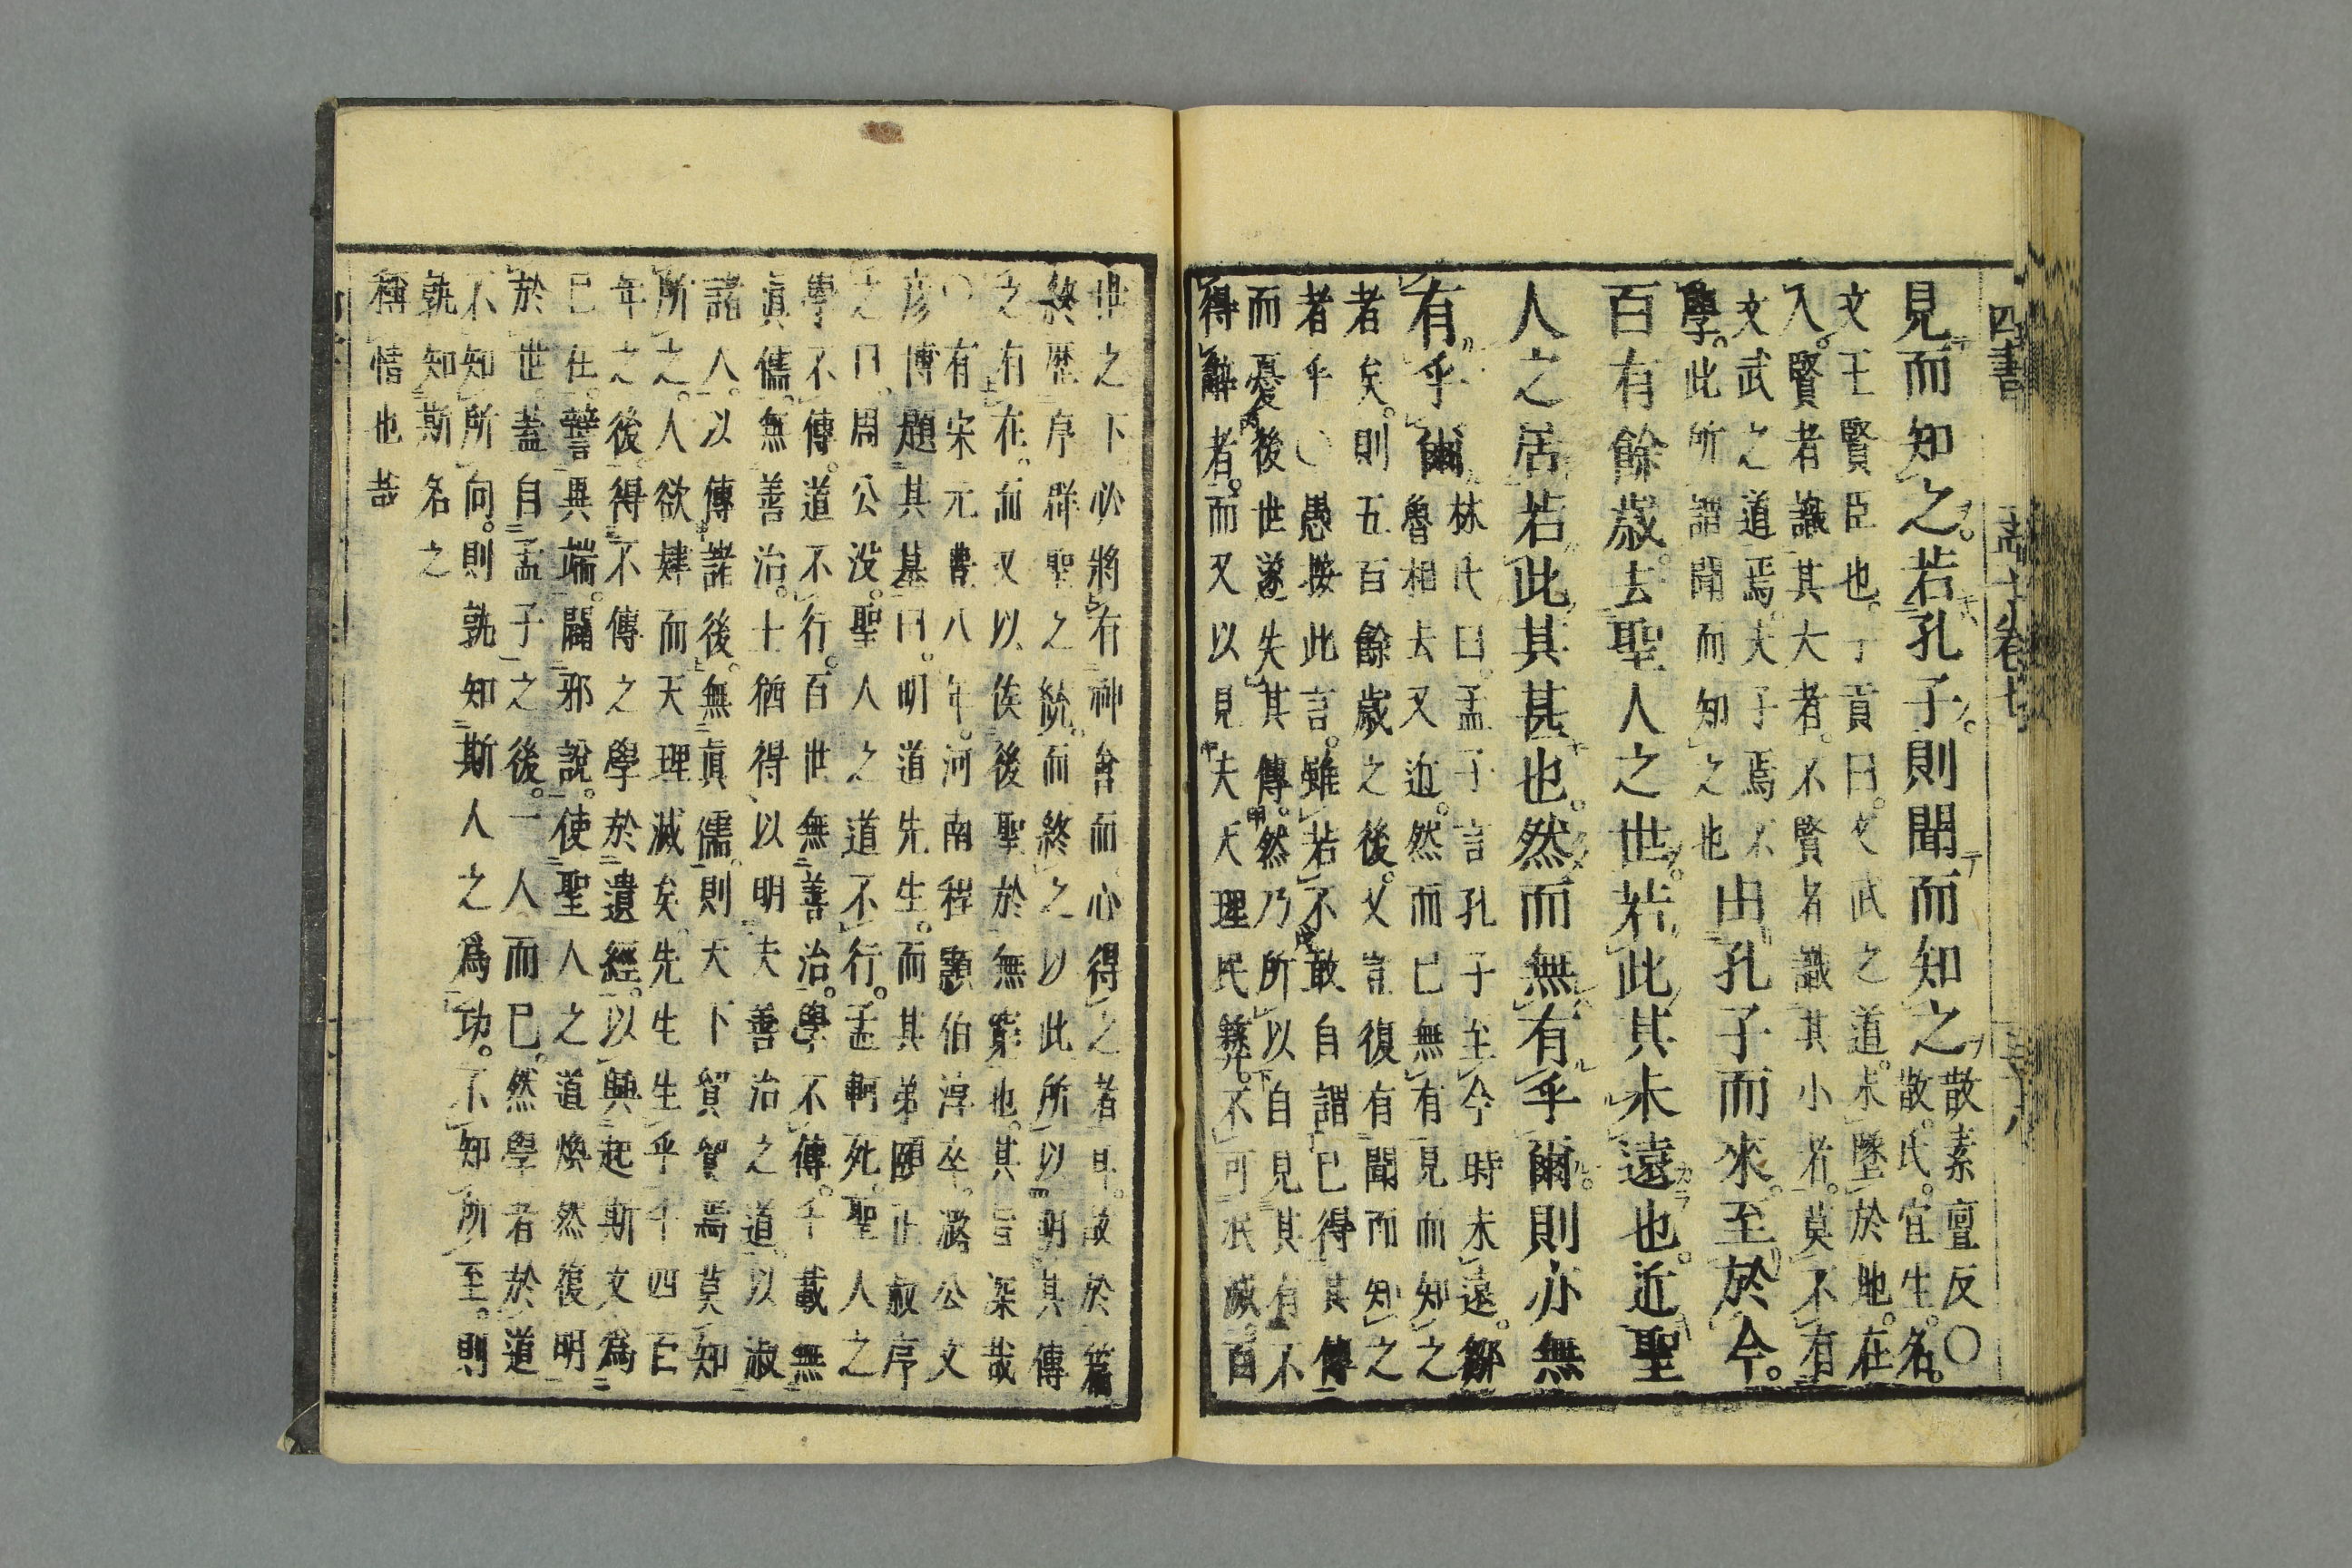 四書 孟子卷七 三十八
見而知之。若孔子。則聞而知之
散素亶反〇
散。氏。宜生。名。
文王賢臣也。子貢曰。文武之道。未墜於地。在
人。賢者識其大者。不賢者識其小者。莫不有
文武之道焉。夫子焉不
學。此所謂聞而知之也
由孔子而來。至於今。
百有餘歲。去聖人之世。若此其未遠也。近聖
人之居若此其甚也。然而無有乎爾。則亦無
有乎爾
林氏曰。孟子言孔子至今時未遠。鄒
魯相去又近。然而已無有見而知之
者矣。則五百餘歲之後。又豈復有聞而知之
者乎〇愚按此言。雖若不敢自謂已得其傳
而憂後世遂失其傳。然乃所以自見其有不
得辭者。而又以見夫天理民彝。不可泯滅。百
世之下。必將有神會而心得之者耳。故於篇
終歷序群聖之統。而終之以此所以明其傳
之有在。而又以俟後聖於無窮也。其旨深哉
〇有宋元豐八年。河南程顥伯淳卒。潞公文
彦博題其墓曰。明道先生。而其弟頤正叔序
之曰。周公没。聖人之道不行。孟軻死。聖人之
學不傳。道不行。百世無善治。學不傳。千載無
眞儒。無善治。士猶得以明夫善治之道。以淑
諸人。以傳諸後。無眞儒。則天下貿貿焉莫知
所之。人欲肆而天理滅矣。先生生乎千四百
年之後。得不傳之學於遺經。以興起斯文爲
已任。辯異端。闢邪說。使聖人之道煥然復明
於世。蓋自孟子之後。一人而已。然學者於道
不知所向。則孰知斯人之爲功。不知所至。則
孰知斯名之
稱情也哉